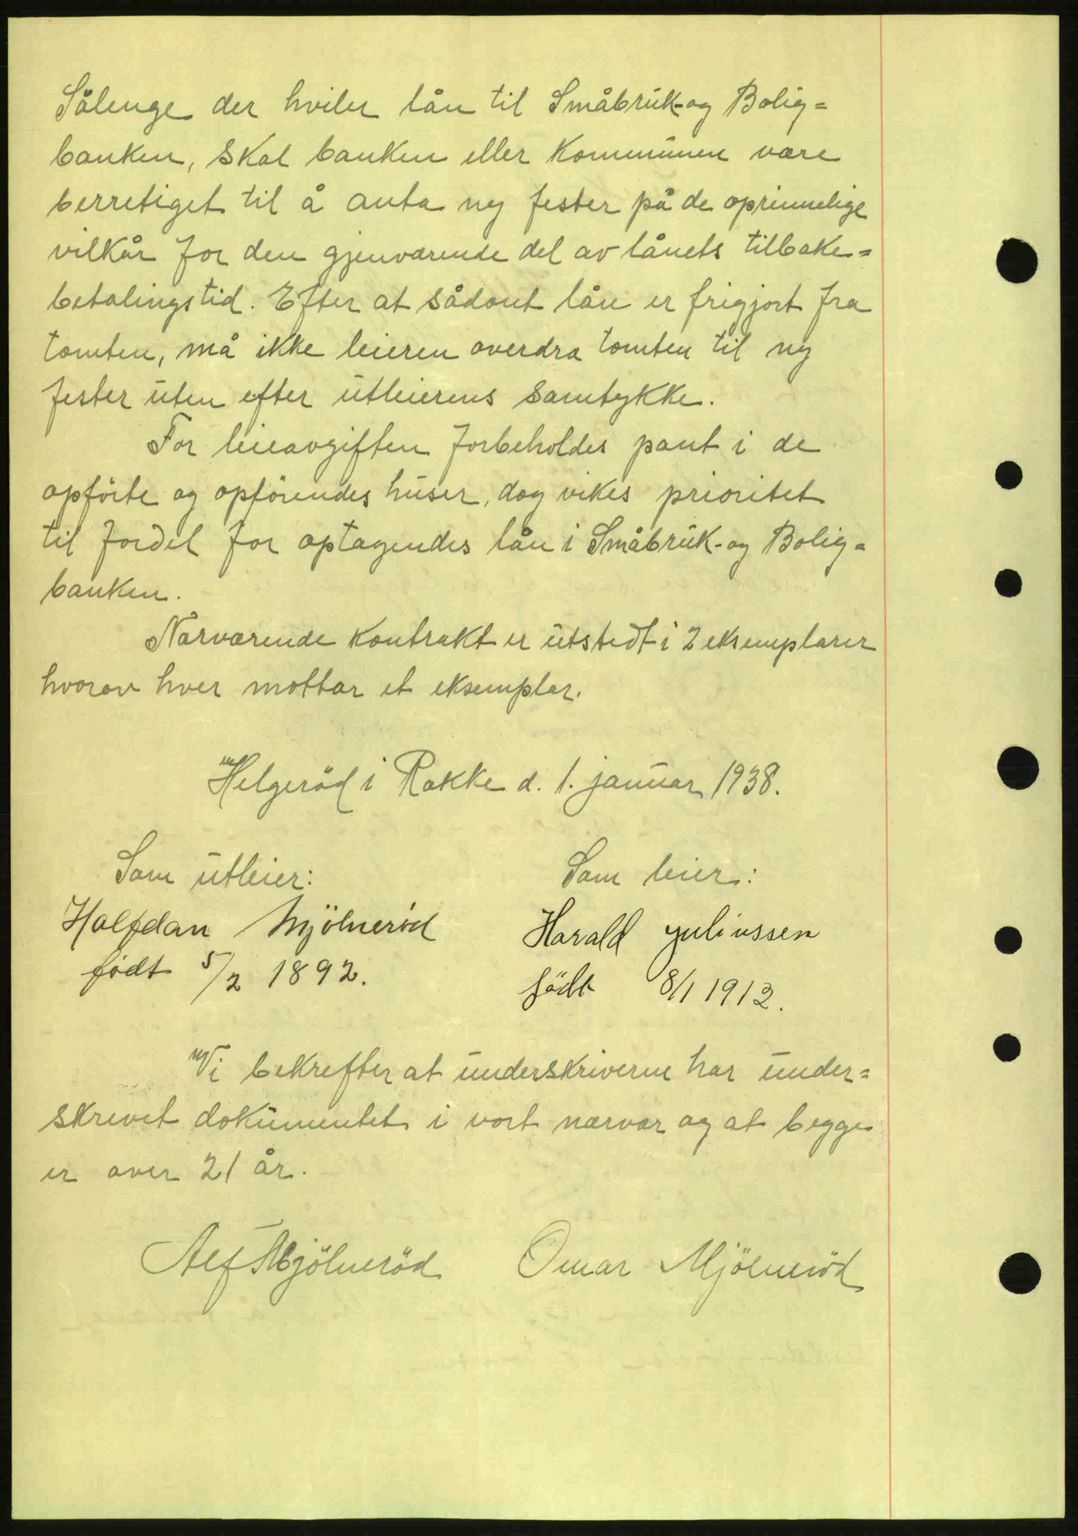 Sålenge der hviler lån til Småbruk- og Bolig=
banken, skal banken eller kommunen være
berretiget til å anta ny fester på de oprinnelige
vilkår for den gjenværende del av lånets tilbake=
betalingstid. Efter at sådant lån er frigjort fra
tomten, må ikke leieren overdra tomten til ny
fester uten efter utleierens samtykke.
For leieavgiften forbeholdes pant i de
opförte og opförendes huser, dog vikes prioritet
til fordel for optagendes lån i Småbruk- og Bolig=
banken.
Nårværende kontrakt er utstedt i 2 eksemplarer
hvorav hver mottar et eksemplar.
Helgeröd i Rakke d. 1. januar 1938.
Som utleier: Som leier:
Halfdan Mjölneröd Harald Juliussen
födt 5/2 1892. födt 8/1 1912.
Vi bekrefter at underskriverne har under=
skrevet dokumentet i vort nærvær og at begge
er over 21 år.
Alf Mjölneröd Omar Mjölneröd